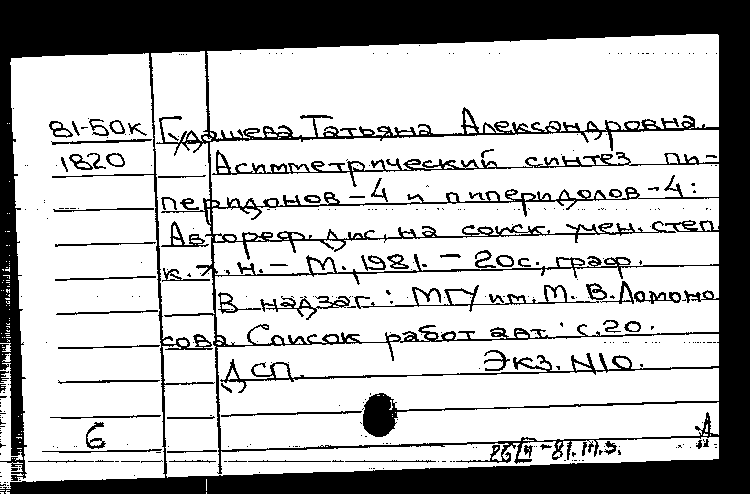 81-50к Гудашева, Татьяна Александровна.
1820 Асимметрический синтез пи-
перидонов-4 и пиперидолов-4:
Автореф. дис. на соиск. учен. степ.
к.х.н. - М., 1981. - 20с., граф.
В надзаг.: МГУ им. М. В. Ломоно
сова. Список работ авт.: с.20.
ДСП. Экз. N10.
6